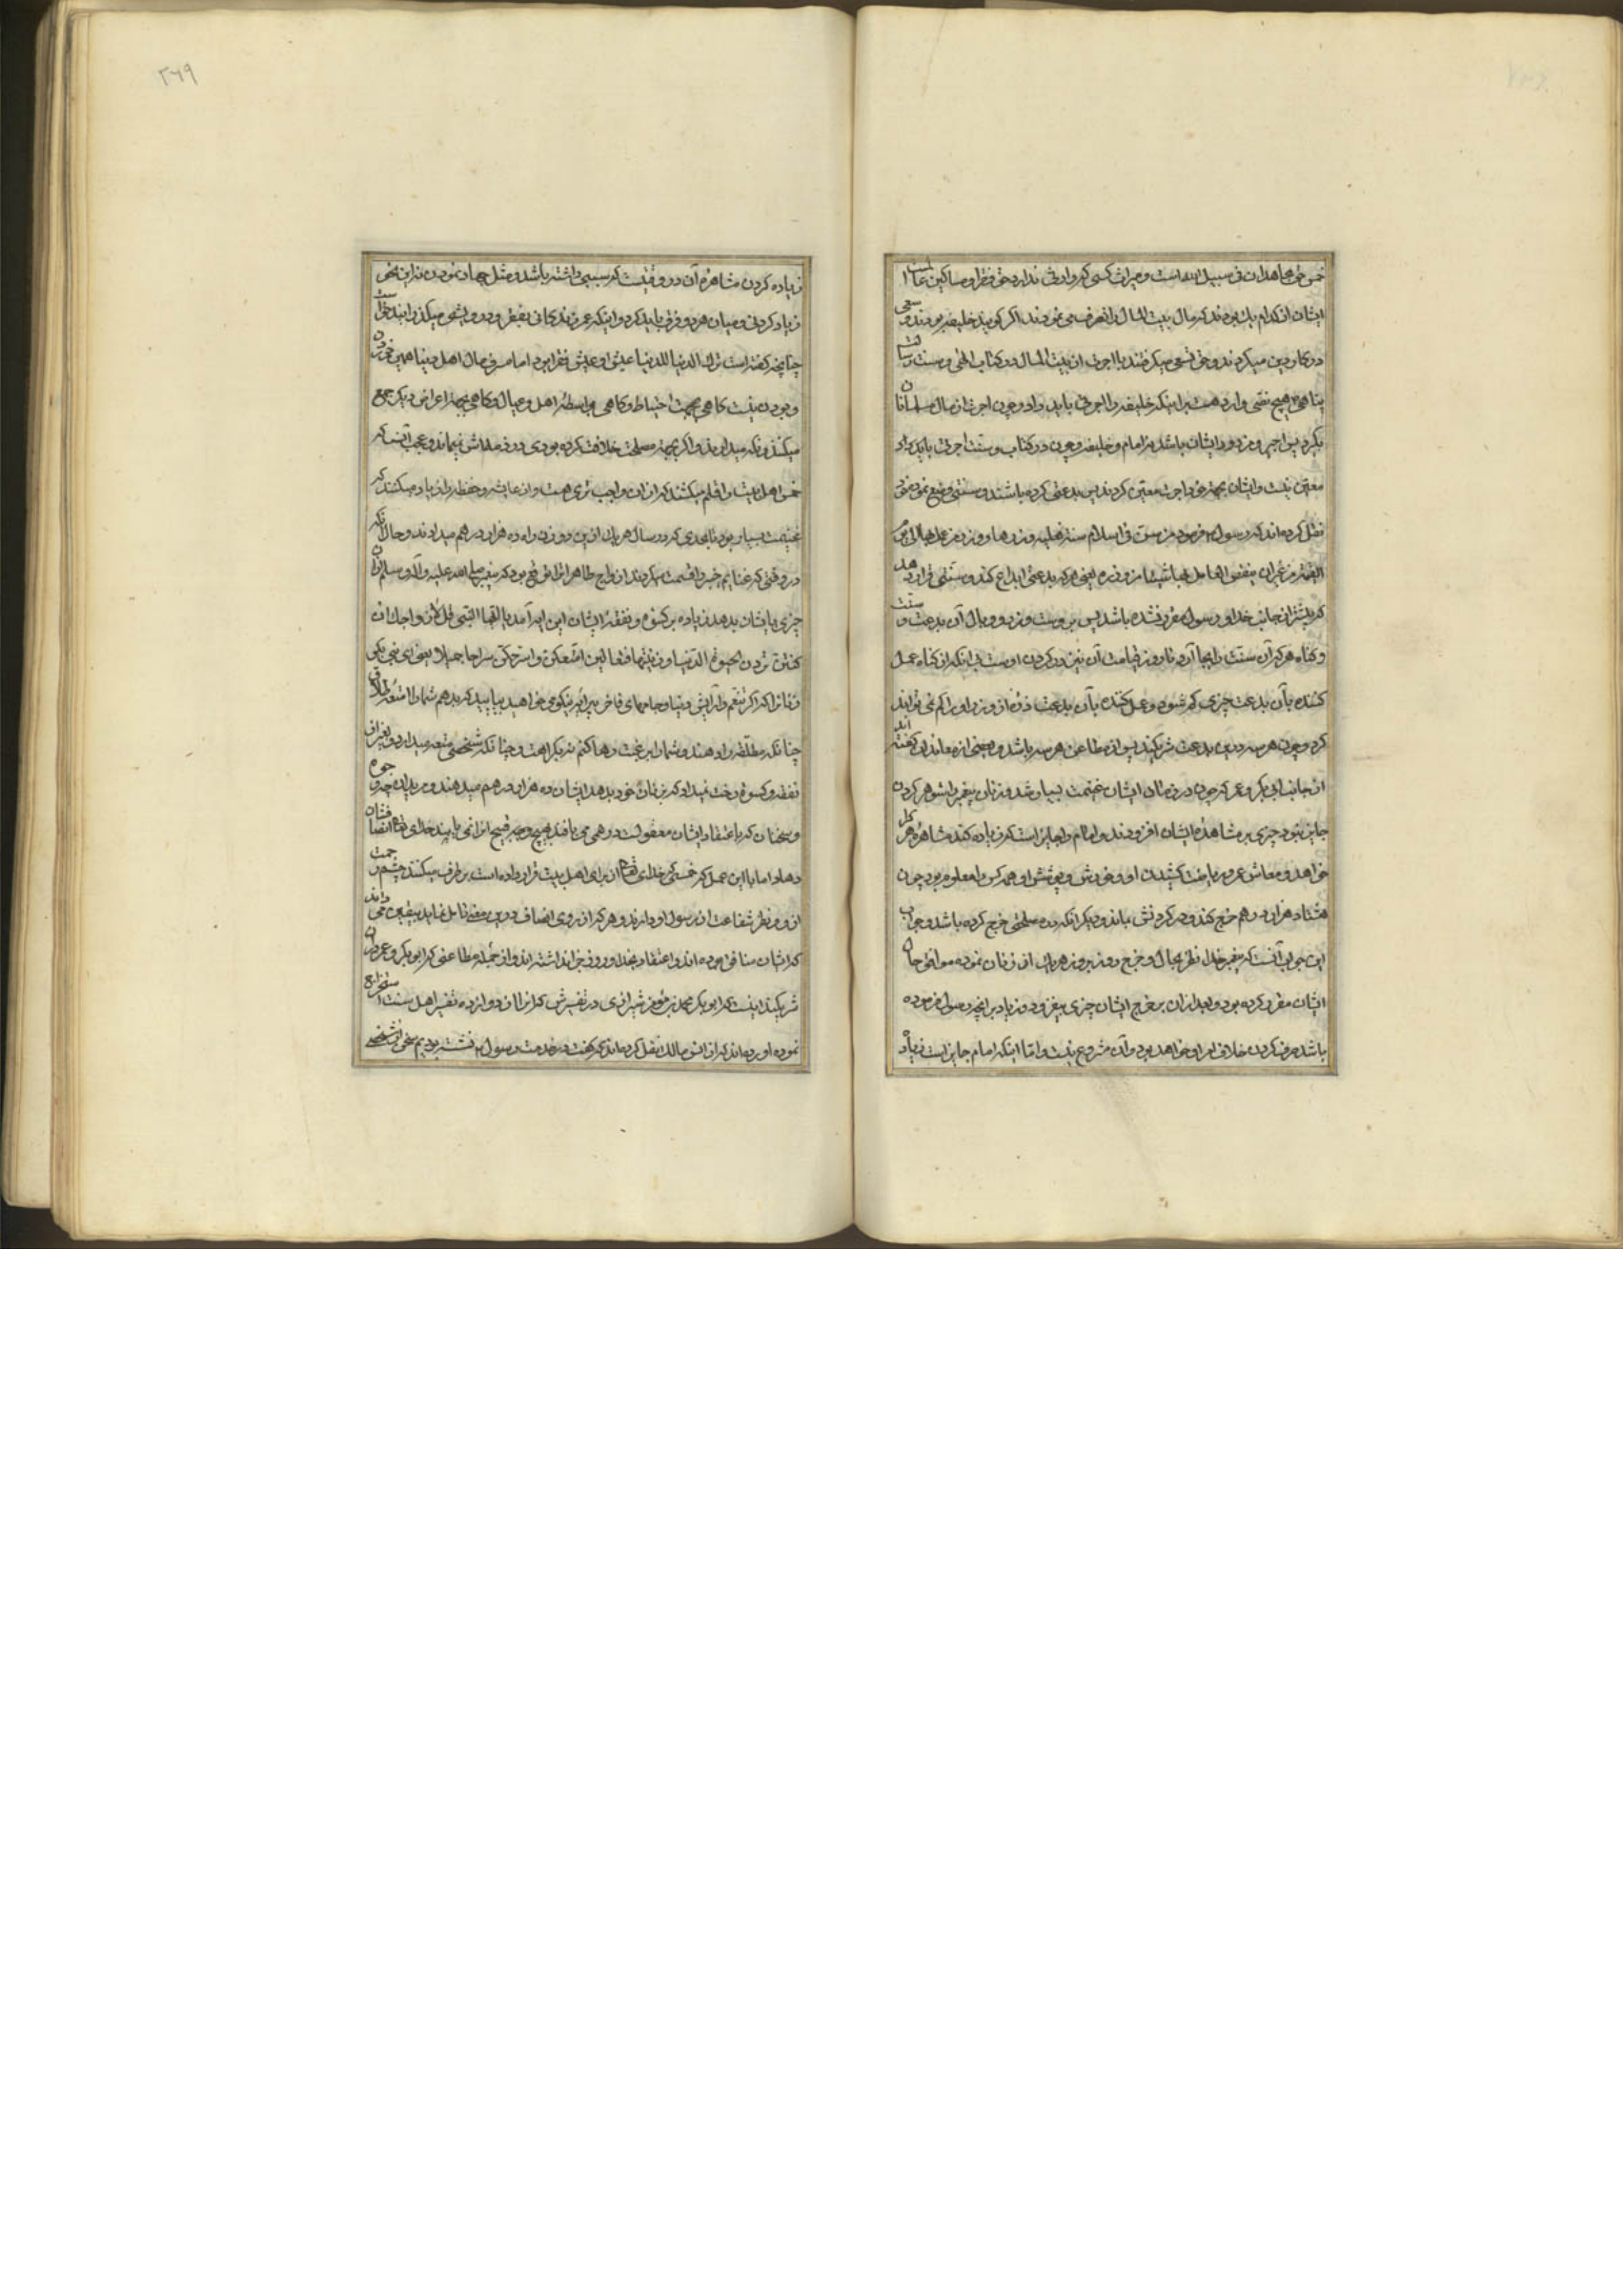 خمس حق مجاهدان فی سبیل الله است و میراث کسی که وارثی ندارد حق فقرا و مساکین
ایشان از کدام یک بودند که مال بیت المال را تصرف می نمودند اگر گویند خلیفه بودند و سعی
در کار دین میکردند و حق سعی میگرفتند یا اجرت از بیت المال در کتاب الهی و سنت رسالت
پناهی هیچ نصی وارد هست بر اینکه خلیفه را اجرتی باید داد و چون اجرت از مال مسلمانان
بگیرد پس اجیر و مزدور ایشان باشد نه امام و خلیفه و چون در کتاب و سنت اجرت باید داد
معین نیست و ایشان بجهة خود اجرت معین کردند پس بدعتی کرده باشند و سنتی وضع نموده
نقل کرده اند که رسول فرمود من سن فی الاسلام سنة فعلیه وزرها و وزر من عمل بها الی یوم
القیمة من غیر ان ینقص العامل بها شیئا من وزره یعنی هر که بدعتی ابداع کند و سنتی قرار دهد
که پیشتر از جانب خدا و رسول مقرر نشده باشد پس بر وست وزر و وبال آن بدعت و سنت
و گناه هر که آن سنت را بجا آرد تا روز قیامت آن نیز در گردن اوست بی آنکه از گناه عمل
کننده بآن بدعت چیزی کم شود و عمل کننده بآن بدعت ذره از وزر او را کم نمی تواند
کرد و چون هر سه درین بدعت شریکند پس از مطاعن هر سه باشد و بعضی از معاندین گفته اند
از جانب ابی بکر و عمر که چون در زمان ایشان غنیمت بسیار شد و زنان پیغمبر را شوهر کردن
جایز نبود چیزی بر مشاهره ایشان افزودند و امام را جایز است که زیاده کند مشاهره هر کرا
خواهد و معاش عمر و ریاضت کشیدن او و خورش و پوشش او همه کس را معلوم بود چون
هشتاد هزار درهم خرج کند و در گردنش بماند و دیگر آنکه در مصلحتی خرج کرده باشد و جواب
این جواب آنست که پیغمبر خدا نظر بحال و خرج روز بروز هر یک از زنان نموده موافق حال
ایشان مقرر کرده بود و بعد از آن بر خرج ایشان چیزی نیفزود و زیاد بر آنچه رسول فرموده
باشد صرف کردن خلاف امر او خواهد بود و آن مشروع نیست و اما اینکه امام جایز است زیاد
۲۶۹
زیاده کردن مشاهره آن در وقتیست که سببی داشته باشد و مثل جهاد نمودن نه این نحو
زیاد کردنی و میان هر دو فرق باید کرد و اینکه عمر زندگانی بفقر و درویشی میگذرانید خوداست
چنانچه گفته است ترک الدنیا للدنیا عیش او عیش فقرا بود اما مصرف مال اهل دنیا همین خوردن
و پوشیدن نیست گاهی بجهت احتیاط و گاهی بواسطه اهل و عیال و گاهی بجهة اعراض دیگر جمع
میکنند و نگه میدارند و اگر بجهة مصلحت خلافت کرده بودی در ذمه اش نمیماند و عجب آنست که
خمس اهل بیت را قلم میکشند که از آن واجب تری هست و از عایشه و حفصه را زیاد میکنند که
غنیمت بسیار بود تا بحدی که در سال هر یک ازین دو زن را ده هزار درهم میدادند و حال آنکه
در وقتی که غنایم خیبر را قسمت میکردند ازواج طاهرات را توقع بود که پیغمبر صلی الله علیه و آله و سلم از آن
چیزی بایشان بدهد زیاده بر کسوه و نفقه ایشان این آیه آمد یا ایها النبی قل لازواجک ان
کنتن تردن الحیوة الدنیا و زینتها فتعالین امتعکن و اسرحکن سراحا جمیلا یعنی ای نبی بگو
زنانرا که اگر تنعم و آرایش دنیا و جامهای فاخر و پیرایه نیکو می خواهید بیایید که بدهم شما را متعه طلاق
چنانکه مطلقه را دهند و شما را برغبت رها کنم نه بکراهت و چنانکه شخصی متعه میدارد و بغیر از
نفقه و کسوه رخت نمیداد که بزنان خود بدهد ایشان ده هزار درهم میدهند و
و سخنان که باعتقاد ایشان معقولست در هم می بافند بهیچ وجه قبیح آنرا نمی یابند خدای تعالی انصافشان
دهاد اما با این عمل که خمسی که خدای تعالی از برای اهل بیت قرار داده است بر طرف میکنند چشم رحمت
ازو و نظر شفاعت از رسول او دارند و هر که از روی انصاف درین معنی تامل نماید بیقین می داند
که ایشان منافق بوده اند و اعتقاد بخدا و روز جزا نداشته اند و از جمله مطاعنی که ابوبکر و عمر در آن
شریکند اینست که ابوبکر محمد بن مؤمن شیرازی در تفسیرش که آنرا از دوازده تفسیر اهل سنت استخراج
نموده آورده اند که از انس مالک نقل کرده اند که گفت در خدمت رسول نشسته بودیم سخن از شخصی